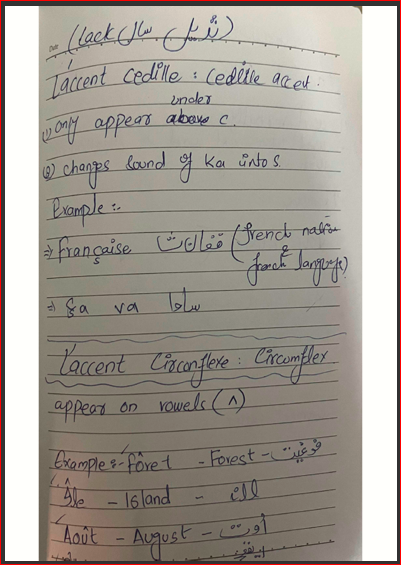 (lack سال
L'accent cedille : Cedille accet.
(1) only appear above under c.
(2) changs sound of Ka into s
Example :-
⇒ Française (french nation & french language)
⇒ ça va ساوا
L'accent Circonflexe : Circumflex
appear on vowels (^)
Example :- Fôret - Forest -
Île - Island -
Août - August - أوت